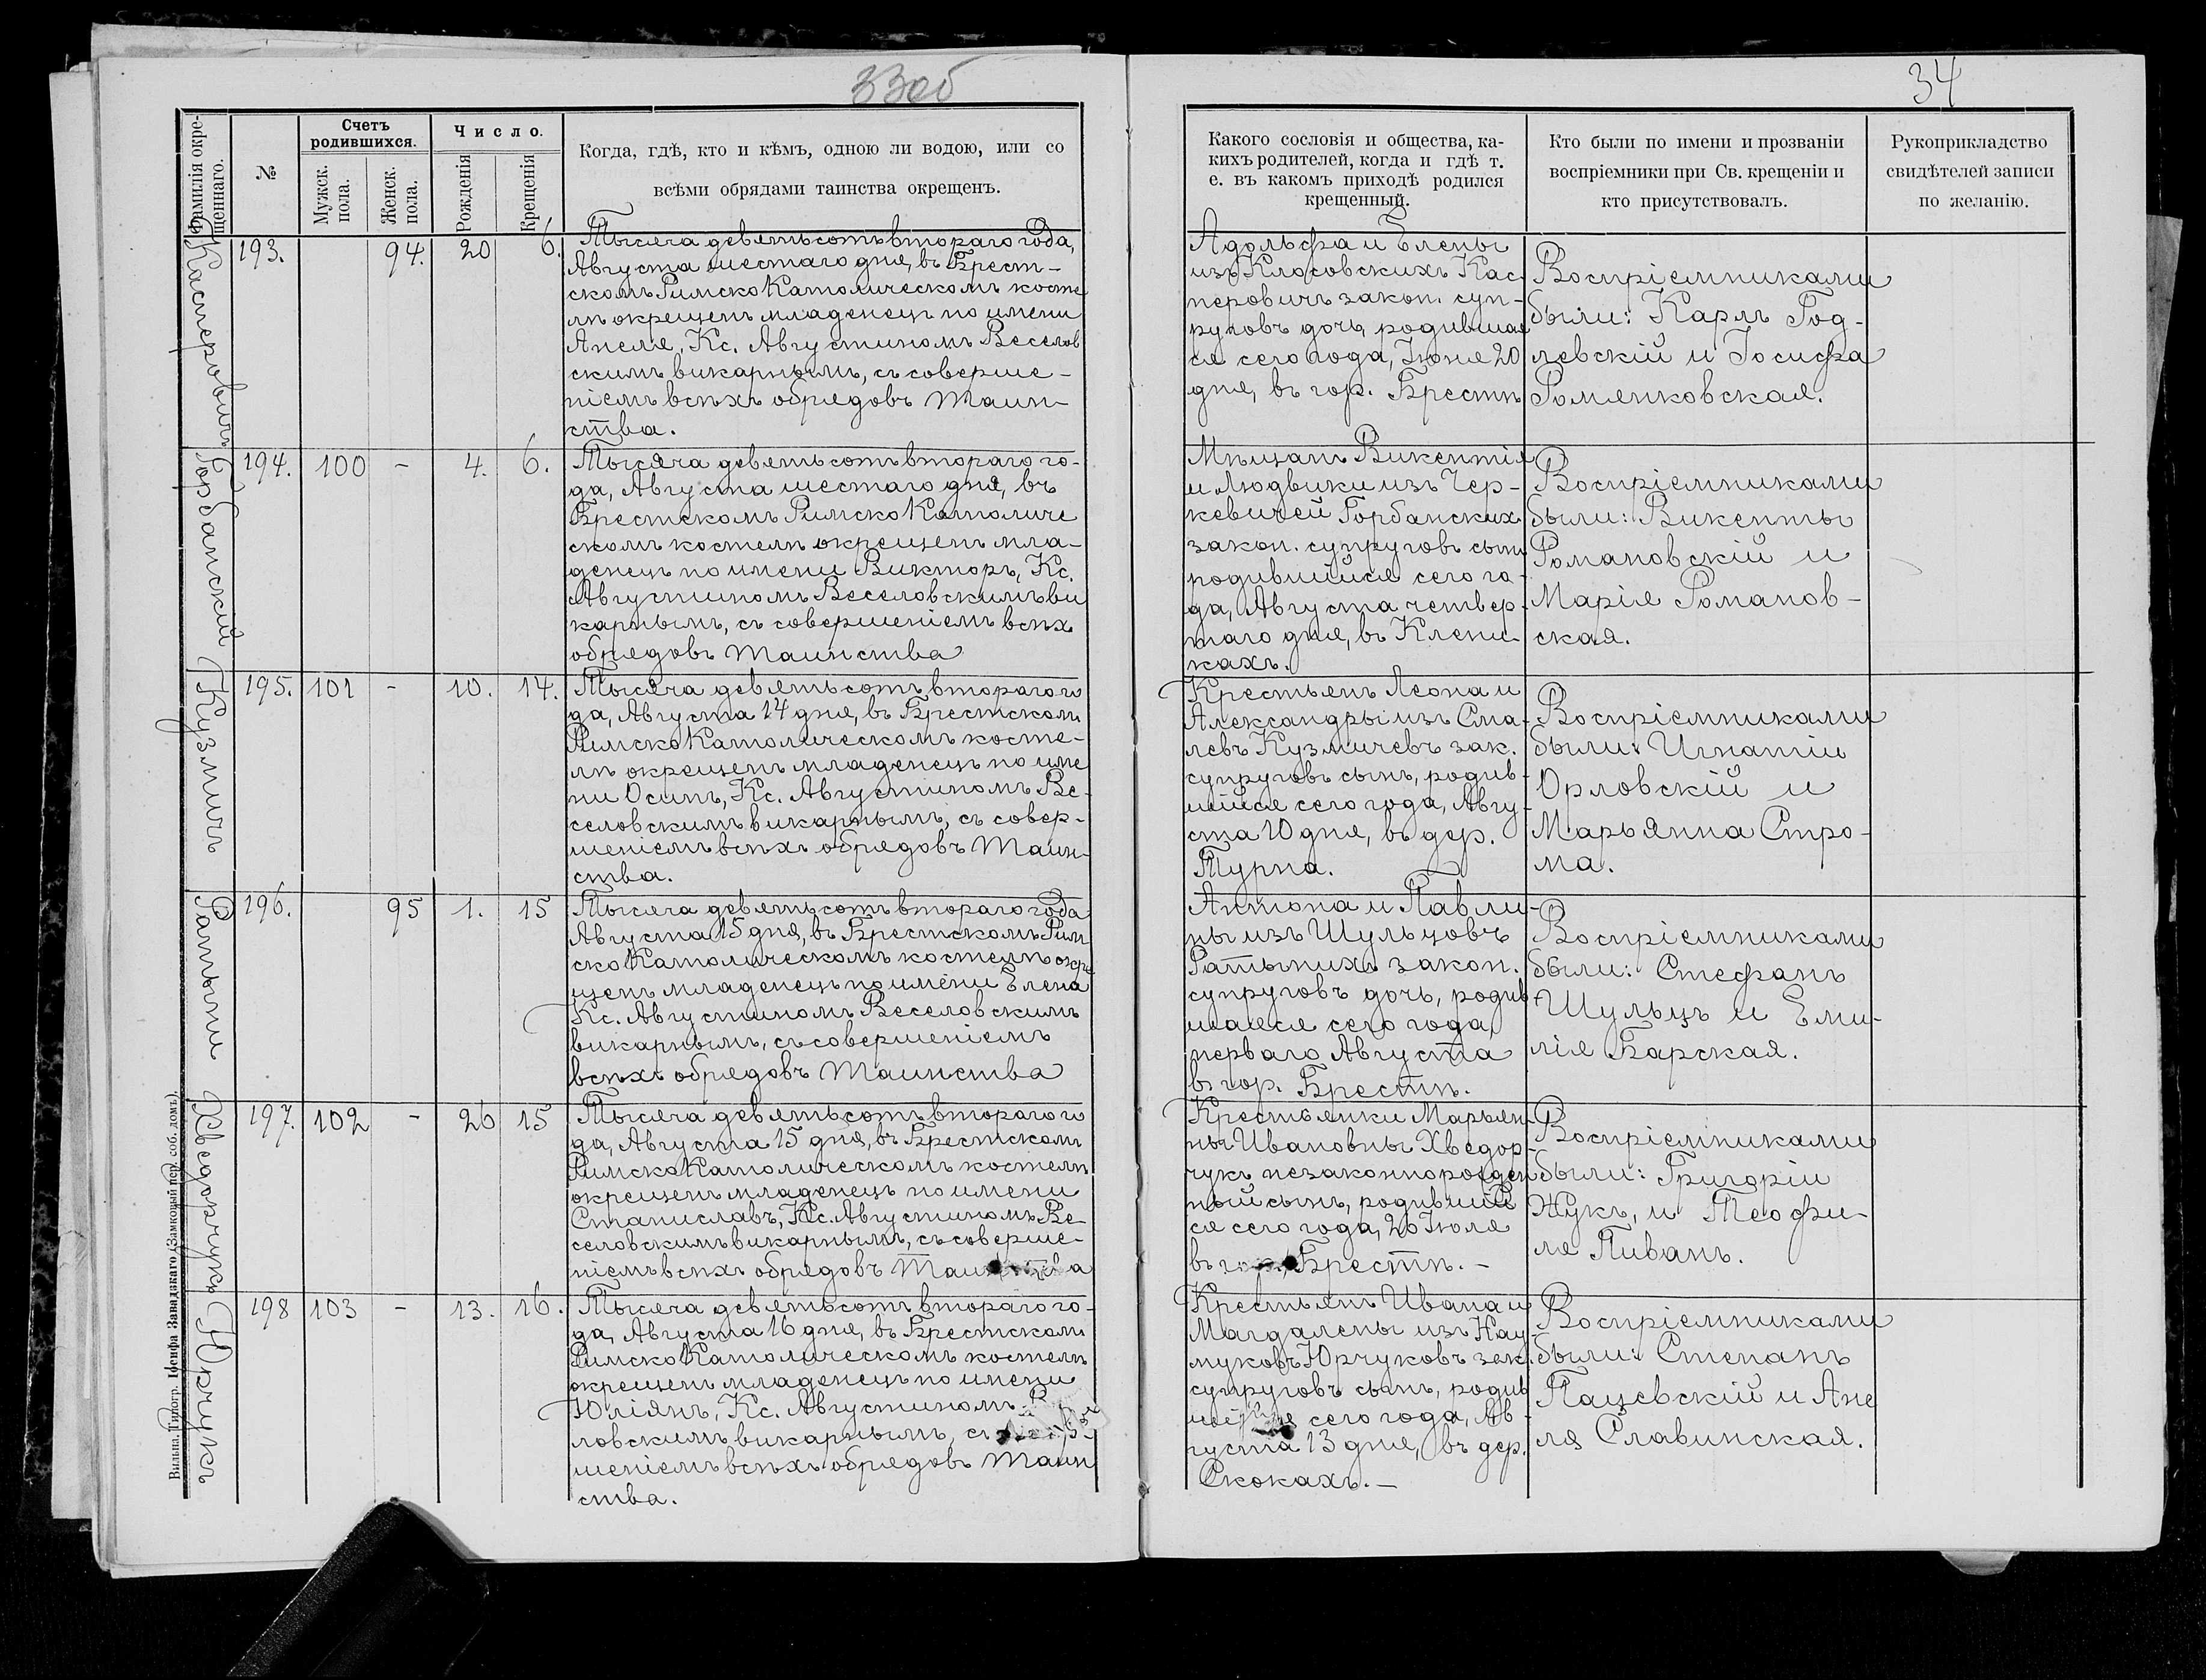 33об
34
Фамилія окре-
щеннаго.
№
Счетъ
родившихся.
Мужск.
пола.
Женск.
пола.
Число.
Рожденія
Крещенія
Когда, гдѣ, кто и кѣмъ, одною ли водою, или со
всѣми обрядами таинства окрещенъ.
Какого сословія и общества, ка-
кихъ родителей, когда и гдѣ т.
е. въ какомъ приходѣ родился
крещенный.
Кто были по имени и прозванію
воспріемники при Св. крещеніи и
кто присутствовалъ.
Рукоприкладство
свидѣтелей записи
по желанію.
Касперовичъ
193.
94.
20
6.
Тысяча девятьсотъ втораго года,
Августа шестаго дня, въ Брест-
скомъ Римско Католическомъ косте
лѣ окрещенъ младенецъ по имени
Анеля, Кс. Августиномъ Веселов
скимъ викарнымъ, съ соверше-
ніемъ всѣхъ обрядовъ Таин-
ства.
Адольфа и Елены
изъ Клосовскихъ Кас-
перовичъ закон. суп-
руговъ дочь, родившая
ся сего года, Іюня 20
дня, въ гор. Брестѣ
Воспріемниками
были: Карлъ Год-
левскій и Іосифа
Роменковская.
Горбанскій
194.
100
-
4.
6.
Тысяча девятьсотъ втораго го-
да, Августа шестаго дня, въ
Брестскомъ Римско Католиче
скомъ костелѣ окрещенъ мла-
денецъ по имени Викторъ, Кс.
Августиномъ Веселовскимъ ви
карнымъ, съ совершеніемъ всѣх
обрядовъ Таинства
Мѣщанъ Викентія
и Людвики изъ Чер-
кевичей Горбанских
закон. супруговъ сынъ
родившійся сего го-
да, Августа четвер-
таго дня, въ Клени-
кахъ.
Воспріемниками
были: Викенты
Романовскій и
Марія Романов-
ская.
Кузмичъ
195.
101
-
10.
14.
Тысяча девятьсотъ втораго го
да, Августа 14 дня, въ Брестскомъ
Римско Католическомъ косте-
лѣ окрещенъ младенецъ по име
ни Осипъ, Кс. Августиномъ Ве-
селовскимъ викарнымъ, съ совер-
шеніемъ всѣхъ обрядовъ Таин-
ства.
Крестьянъ Леона и
Александры изъ Сма-
левъ Кузмичевъ зак.
супруговъ сынъ, родив-
шійся сего года, Авгу-
ста 10 дня, въ дер.
Турна.
Воспріемниками
были: Игнатіи
Орловскій и
Марьянна Стро-
ма.
Ратыни
196.
95
1.
15
Тысяча девятьсотъ втораго года
Августа 15 дня, въ Брестскомъ Рим
ско Католическомъ костелѣ окре
щенъ младенецъ по имени Елена
Кс. Августиномъ Веселовскимъ
викарнымъ, съ совершеніемъ
всѣхъ обрядовъ Таинства
Антона и Павли-
ны изъ Шульцовъ
Ратыних закон.
супруговъ дочь, родив
шаяся сего года,
перваго Августа
въ гор. Брестѣ.
Воспріемниками
были: Стефанъ
Шульцъ и Еми-
лія Барская.
Хведорчукъ
197.
102
-
26
15
Тысяча девятьсотъ втораго го
да, Августа 15 дня, въ Брестскомъ
Римско Католическомъ костелѣ
окрещенъ младенецъ по имени
Станиславъ, Кс. Августиномъ Ве-
селовскимъ викарнымъ, съ соверше-
ніемъ всѣхъ обрядовъ Таинства
Крестьянки Марьян
ны Ивановны Хведор-
чукъ незаконнорожден
ный сынъ, родившій
ся сего года, 26 Іюля
въ гор. Брестѣ.-
Воспріемниками
были: Григоріи
Жукъ, и Теофи-
ля Пиванъ.
Юрчукъ
198
103
-
13.
16.
Тысяча девятьсотъ втораго го-
да, Августа 16 дня, въ Брестскомъ
Римско Католическомъ костелѣ
окрещенъ младенецъ по имени
Юліянъ, Кс. Августиномъ
ловскимъ викарнымъ, съ
шеніемъ всѣхъ обрядовъ Таин
ства.
Крестьянъ Ивана и
Магдалены изъ Нау-
муковъ Юрчуковъ зак.
супруговъ сынъ, родив
сего года, Ав-
густа 13 дня, въ дер.
Скокахъ.-
Воспріемниками
были: Степанъ
Пацевскій и Ане
ля Славинская.
Вильна. Типогр. Іосифа Завадзкаго (Замковый пер. соб. домъ).